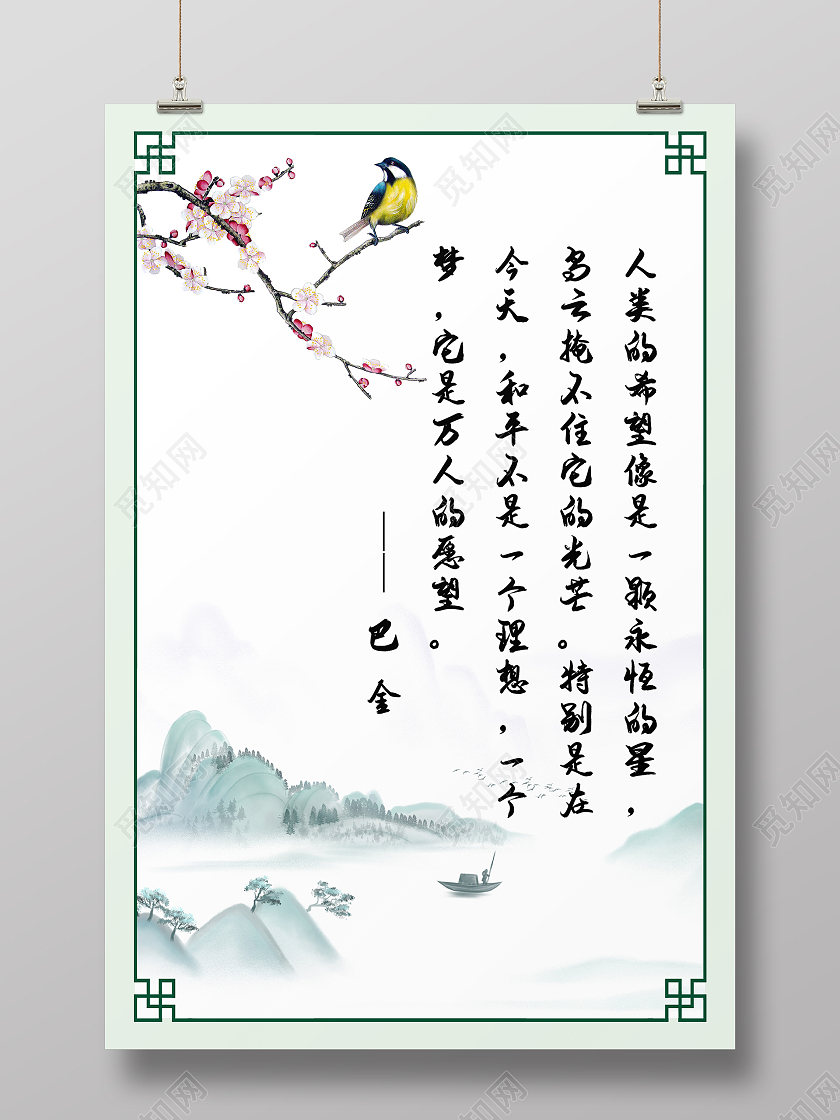 人类的希望像是一颗永恒的星，
乌云掩不住它的光芒。特别是在
今天，和平不是一个理想，一个
梦，它是万人的愿望。
——巴金
觅知网